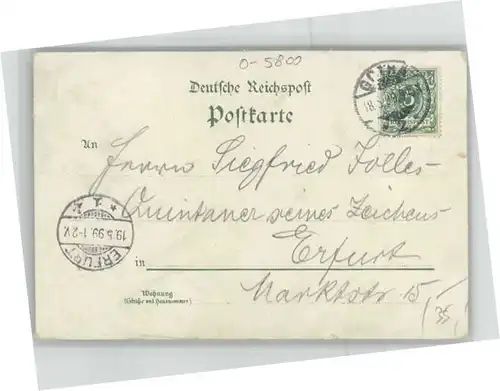 O-5800
Deutsche Reichspost
Postkarte
An Herrn Siegfried Folles-
Quintaner seines Zeichens-
in Erfurt
Wohnung
(Straße und Hausnummer)
Marktstr. 15
35
ERFURT
19.5.99. 1-2 V.